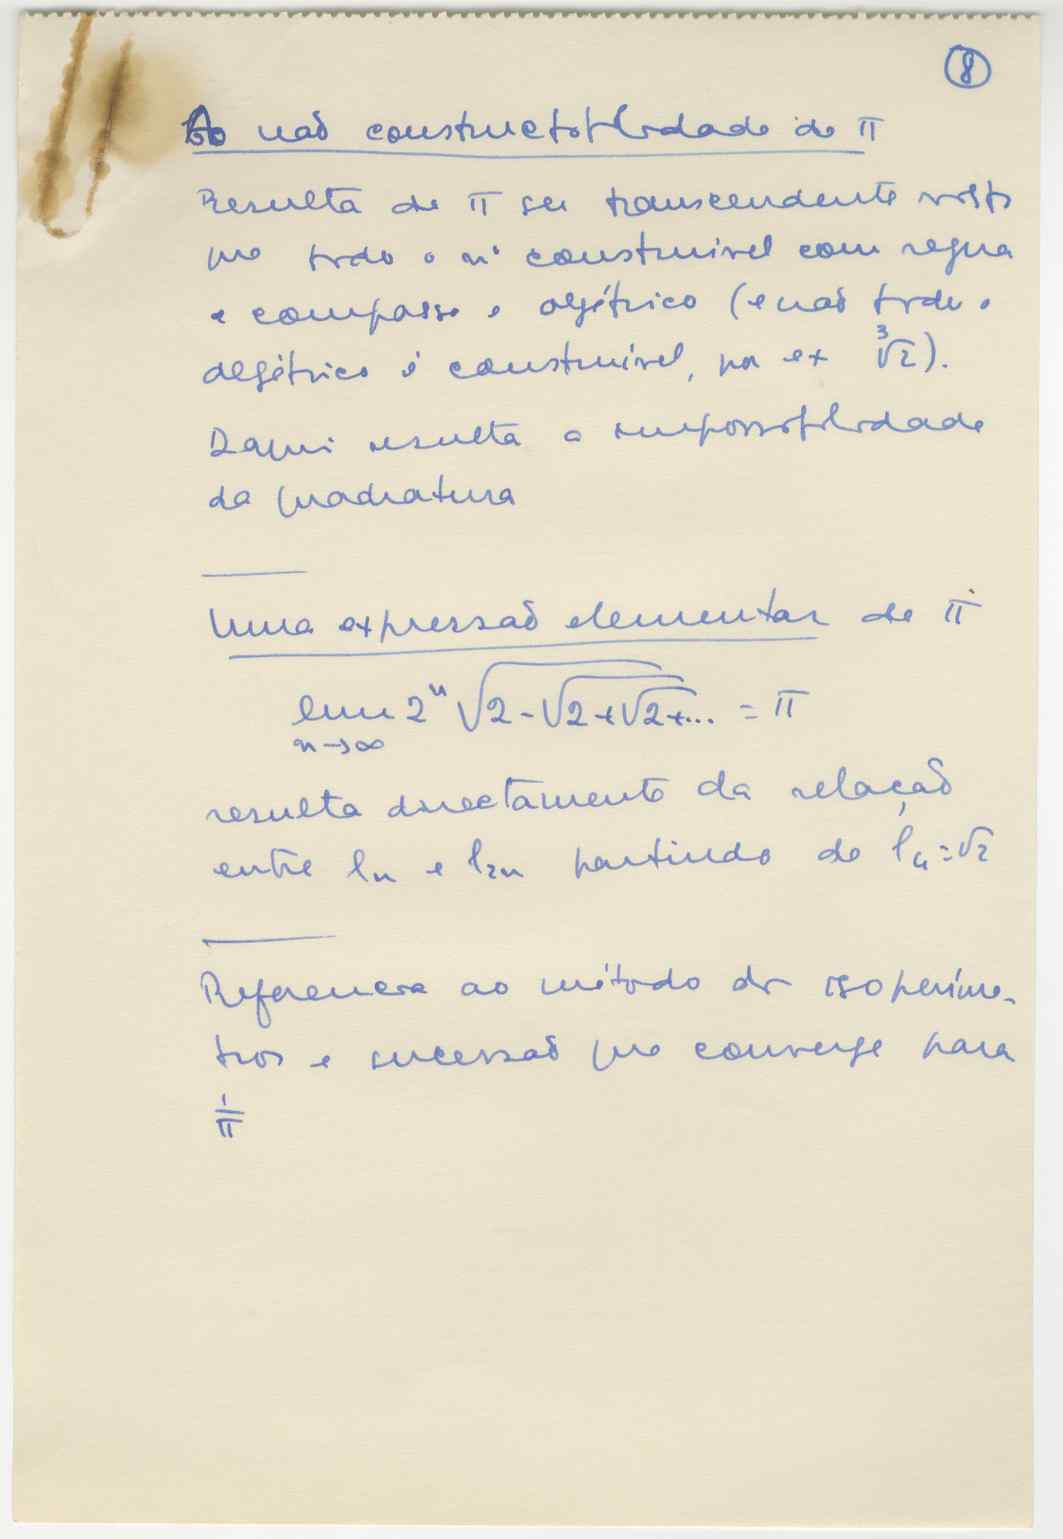 8
A não constructibilidade de π
Resulta de π ser transcendente visto
que todo o nº construível com regua
e compasso é algébrico (e nao todo o
algébrico é construível, por ex ∛2).
Daqui resulta a impossibilidade
da quadratura
Uma expressão elementar de π
lim 2ⁿ √(2-√(2+√(2+... = π
n→∞
resulta directamente da relação
entre lₙ e l₂ₙ partindo de l₄=√2
Referencia ao método dos isoperíme-
tros e sucessão que converge para
1/π